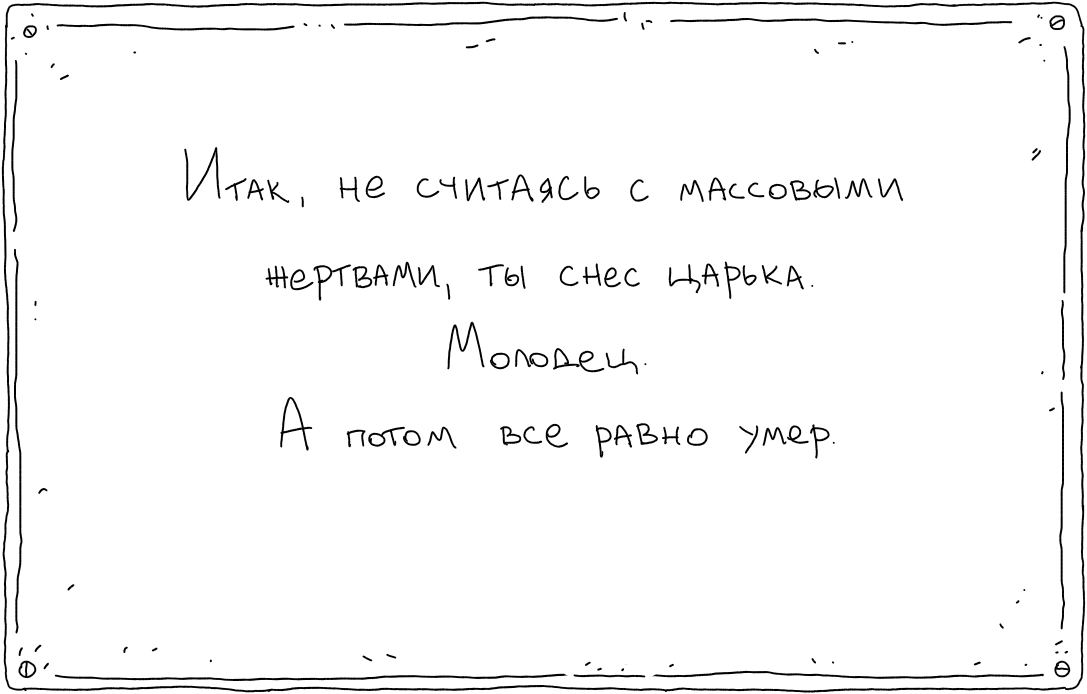 Итак, не считаясь с массовыми
жертвами, ты снес царька.
Молодец.
А потом все равно умер.